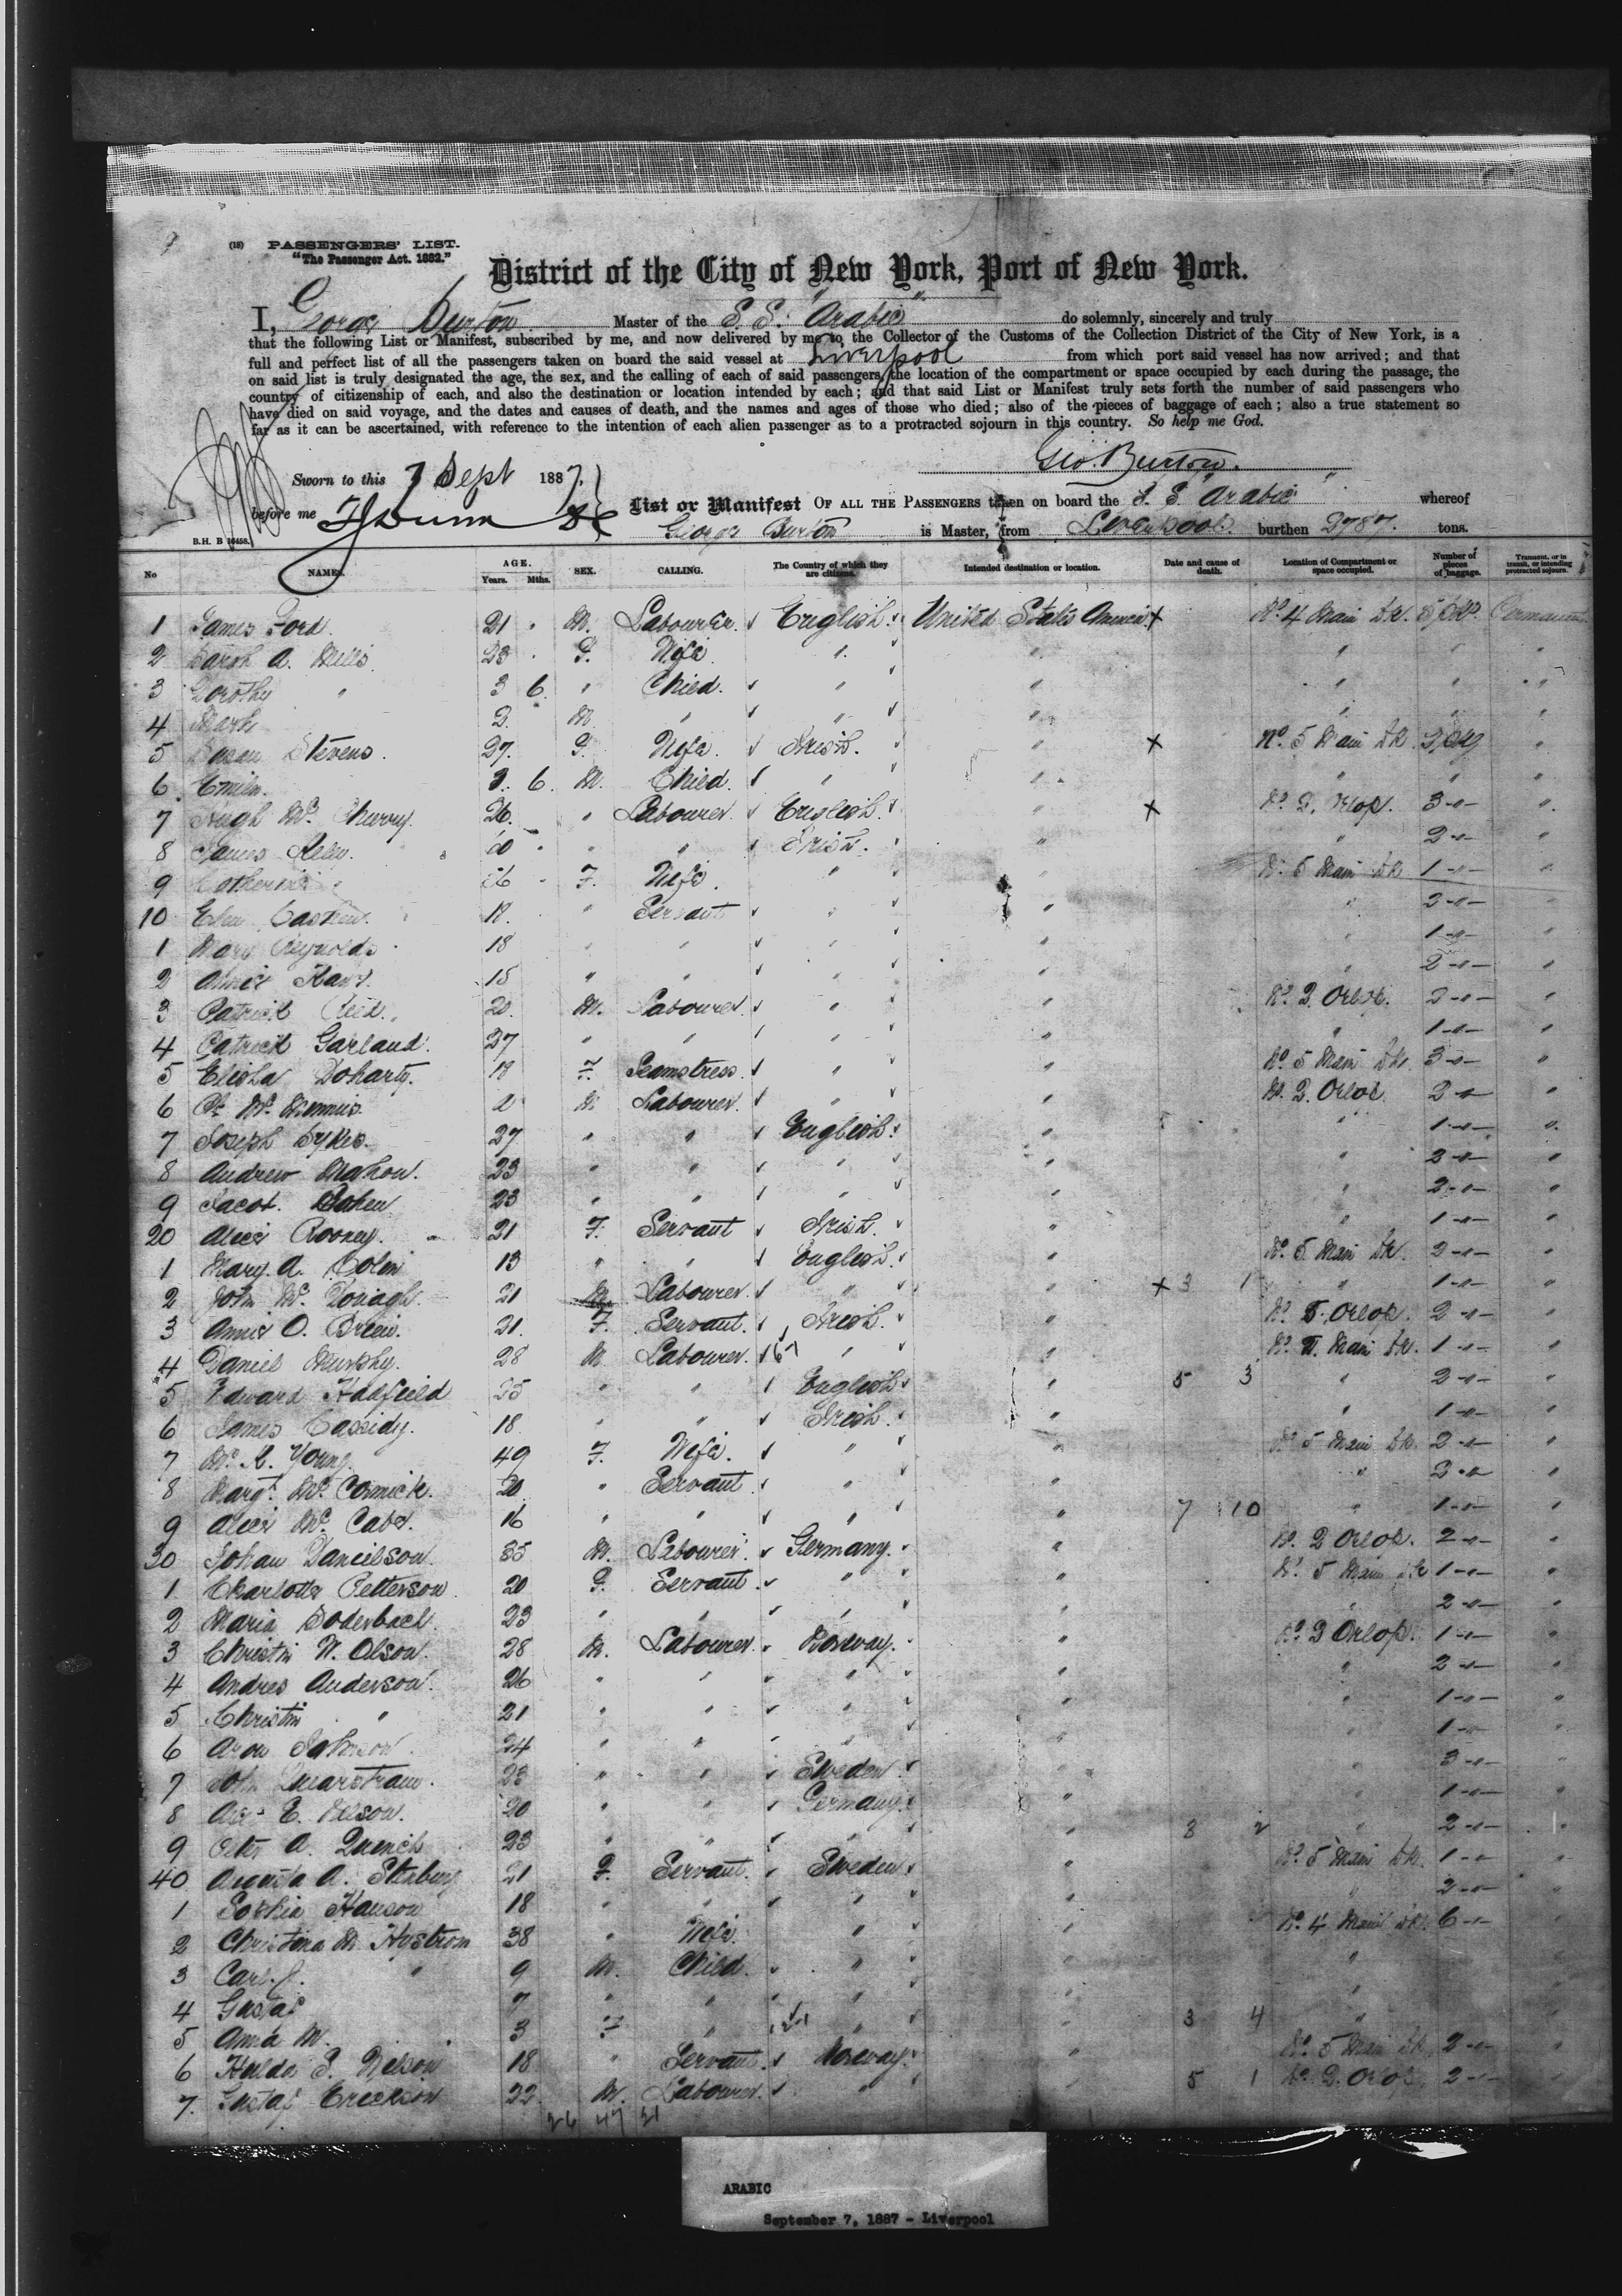 (18) PASSENGERS' LIST.
"The Passenger Act. 1882."
District of the City of New York, Port of New York.
I, George Burton Master of the S.S. "Arabic" do solemnly, sincerely and truly
that the following List or Manifest, subscribed by me, and now delivered by me to the Collector of the Customs of the Collection District of the City of New York, is a
full and perfect list of all the passengers taken on board the said vessel at Liverpool from which port said vessel has now arrived; and that
on said list is truly designated the age, the sex, and the calling of each of said passengers, the location of the compartment or space occupied by each during the passage, the
country of citizenship of each, and also the destination or location intended by each; and that said List or Manifest truly sets forth the number of said passengers who
have died on said voyage, and the dates and causes of death, and the names and ages of those who died; also of the pieces of baggage of each; also a true statement so
far as it can be ascertained, with reference to the intention of each alien passenger as to a protracted sojourn in this country. So help me God.
Geo. Burton.
Sworn to this 7 Sept 1887.
before me
List or Manifest OF ALL THE PASSENGERS taken on board the S.S. "Arabic" whereof
George Burton is Master, from Liverpool burthen 2787 tons.
B.H. B 16458.
No NAMES. AGE. Years. Mths. SEX. CALLING. The Country of which they are citizens. Intended destination or location. Date and cause of death. Location of Compartment or space occupied. Number of pieces of baggage. Transient, or in transit, or intending protracted sojourn.
1 James Ford. 21 M. Labourer. English. United States America No. 4 Main Dk. Permanent
2 Sarah A. Mills 23 F. Wife " " " " "
3 Dorothy " 3 6 " Child. " " " " "
4 Mark 2 M " " " " "
5 Susan Stevens. 27. F. Wife. Irish. " No. 5 Main Dk "
6 6 M. Child " " " " "
7 Hugh Mc. 26. " Labourer English. " No. 2. Orlop. 3 -"- "
8 James " " Irish. " " 2 -"- "
9 Catherine F. Wife. " " No. 5 Main Dk 1 -"-
10 18. " Servant " " " 2 -"- "
1 Mary Reynolds 18 " " " " " 1 -"- "
2 Annie 15 " " " " " 2 -"- "
3 Patrick Reed. 20. M. Labourer " " No. 2. Orlop. 2 -"- "
4 Patrick Garland. 37 " " " " " 1 -"- "
5 Elisha Doharty. 18 F. Seamstress. " " No. 5 Main Dk. 3 -"- "
6 M Labourer. " " No. 2. Orlop 2 -"- "
7 Joseph Sykes. 27 " " English. " " 1 -"- "
8 Andrew Mahon. 23 " " " " " 2 -"- "
9 Jacob. Cohen 23 " " " " " 2 -"- "
20 Alice Rooney. 21 F. Servant Irish. " " 1 -"- "
1 Mary. A. 13 " " English. " No. 5. Main Dk. 2 -"- "
2 John Mc. Donagh. 21 M Labourer. " " 3 1 " 1 -"- "
3 Annie O. Brien. 21. F. Servant. Irish. " No. 5. Orlop. 2 -"- "
4 Daniel Murphy. 28 M Labourer. " " Main Dk. 1 -"- "
5 Edward Hadfield 25 " " English " 5 3 " 2 -"- "
6 James Cassidy. 18. " " Irish. " " 1 -"- "
7 Young. 49 F. Wife. " " No. 5 Main Dk. 2 -"- "
8 Margt. Mc. Cormick. 20 " Servant " " " 2 -"- "
9 Alice Mc. Cabe. 16 " " " " 7 10 " 1 -"- "
30 Johan Danielson. 35 M. Labourer. Germany. " No. 2 Orlop. 2 -"- "
1 Charlotte Petterson. 20 F. Servant. " " No. 5 Main Dk 1 -"- "
2 Maria Soderbach. 23 " " " " " 2 -"- "
3 Christin N. Olson. 28 M. Labourer. Norway. " No. 2 Orlop. 1 -"- "
4 Andres Anderson. 26 " " " " " 2 -"- "
5 Christin " 21 " " " " " 1 -"- "
6 Aron Johnson 24 " " " " " 1 -"- "
7 John 23 " " Sweden. " " 3 -"- "
8 E. Nelson. 20 " " Germany. " " 1 -"- "
9 Peter A. Quench 23 " " " " 3 2 " 2 -"- "
40 Augusta A. Stenburg 21 F. Servant. Sweden " No. 5 Main Dk. 1 -"- "
1 Sophia Hanson 18 " " " " " 2 -"- "
2 Christina M. Nystrom 38 " Wife. " " No. 4 Main Dk. 6 -"- "
3 Carl. J. " 9 M. Child. " " " "
4 Gustaf 7 " " " " " "
5 Anna M. 3 F " " " 3 4 " "
6 Hulda S. Nelson 18 " Servant. Norway. " No. 5 Main Dk. 2 -"- "
7. Gustaf Erickson 22. M. Labourer. " " 5 1 No. 2. Orlop. 2 -"- "
26 47 21
ARABIC
September 7, 1887 - Liverpool